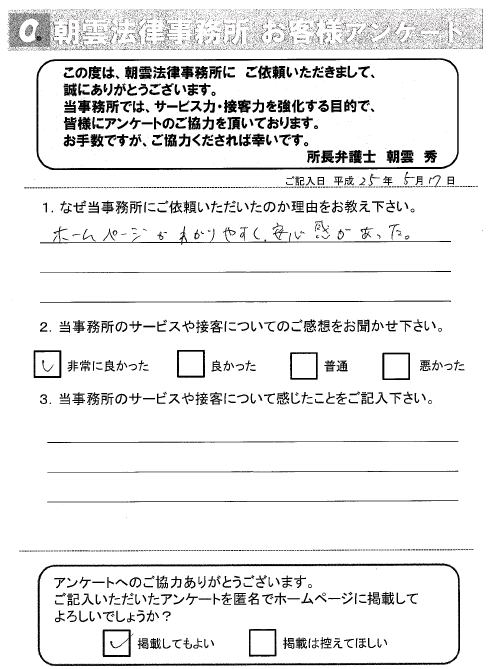 Q. 朝雲法律事務所 お客様アンケート
この度は、朝雲法律事務所に ご依頼いただきまして、
誠にありがとうございます。
当事務所では、サービス力・接客力を強化する目的で、
皆様にアンケートのご協力を頂いております。
お手数ですが、ご協力くだされば幸いです。
所長弁護士 朝雲 秀
ご記入日 平成 25 年 5 月 17 日
1. なぜ当事務所にご依頼いただいたのか理由をお教え下さい。
ホームページがわかりやすく、安心感があった。
2. 当事務所のサービスや接客についてのご感想をお聞かせ下さい。
非常に良かった 良かった 普通 悪かった
3. 当事務所のサービスや接客について感じたことをご記入下さい。
アンケートへのご協力ありがとうございます。
ご記入いただいたアンケートを匿名でホームページに掲載して
よろしいでしょうか？
掲載してもよい 掲載は控えてほしい